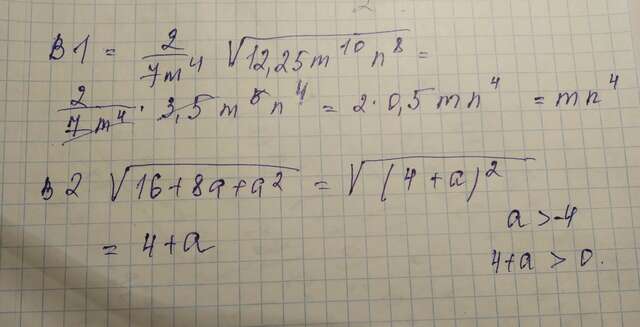 B1 = 2/7m⁴ √12,25m¹⁰n⁸ =
2/7m⁴ · 3,5m⁵n⁴ = 2·0,5mn⁴ = mn⁴
B2 √16+8a+a² = √(4+a)²
a>-4
= 4+a
4+a>0.